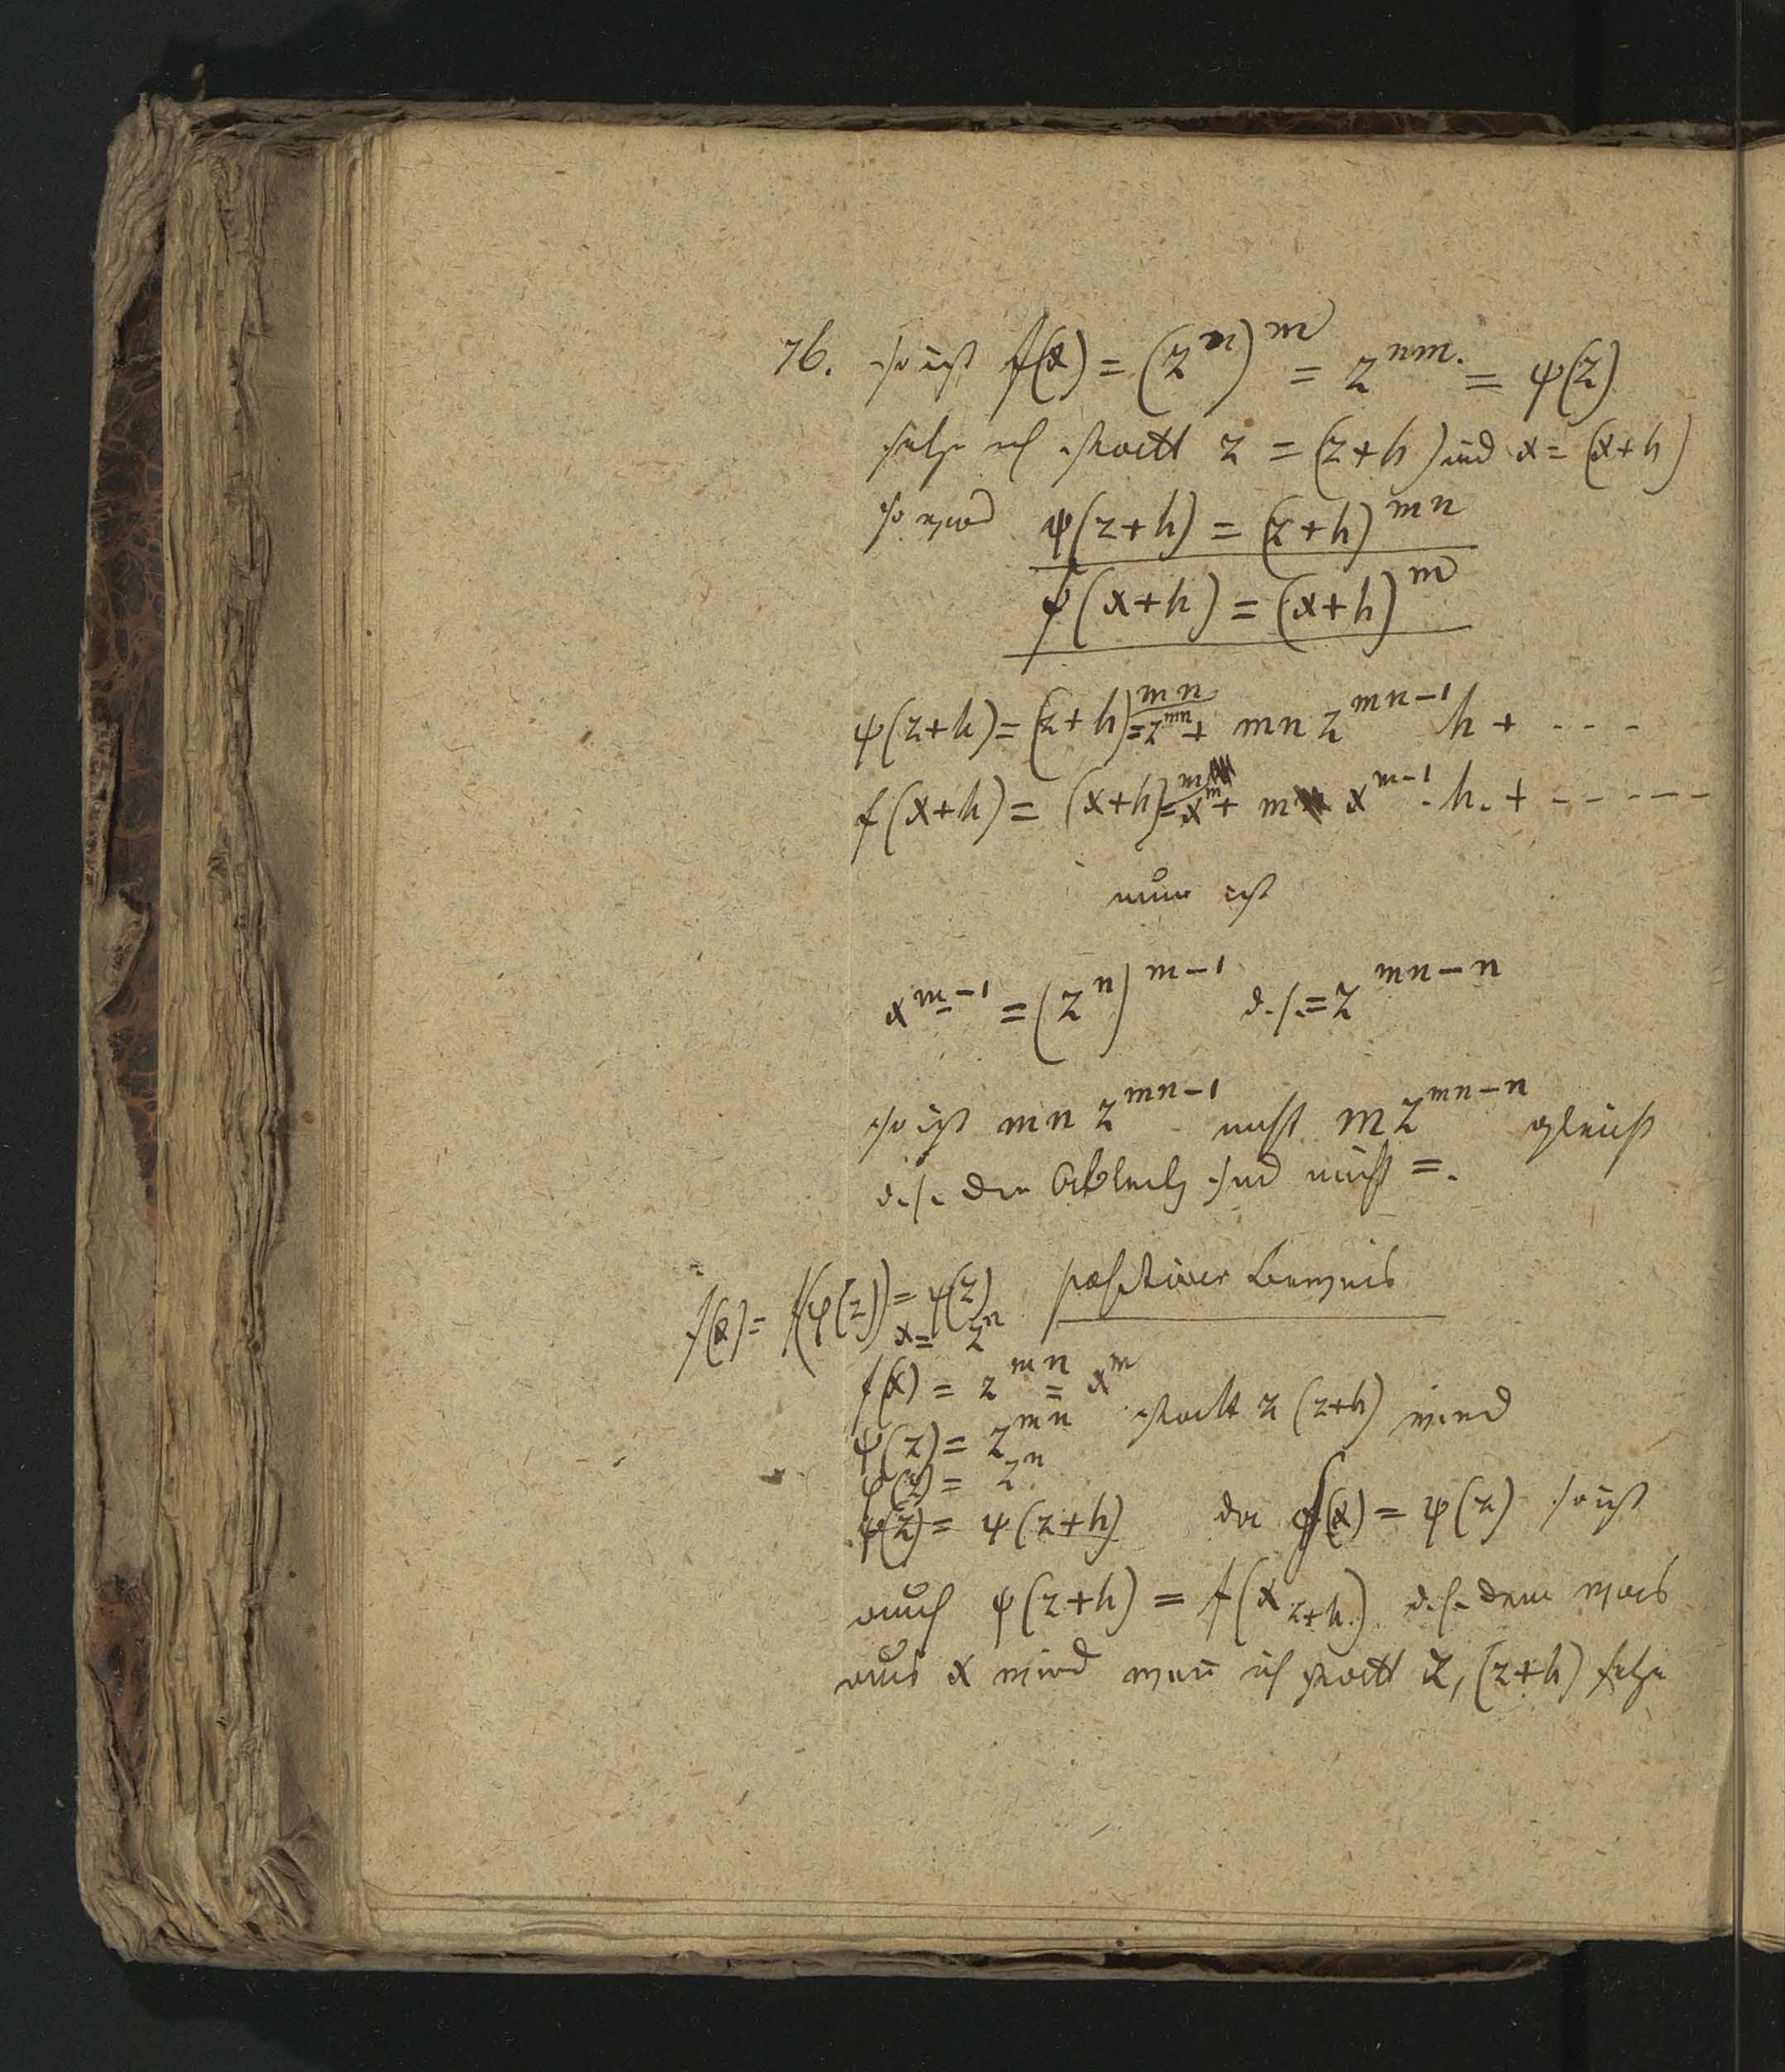 76. so ist f(x) = (z^n)^m = z^{nm}. = ψ(z)
setze ich statt z = (z+h) und x = (x+h)
so wird ψ(z+h) = (z+h)^{mn}
f(x+h) = (x+h)^m
ψ(z+h) = (z+h)^{mn} = z^{mn} + mn z^{mn-1} h + - - - -
f(x+h) = (x+h)^m = x^m + m x^{m-1} . h. + - - - - -
nun ist
x^{m-1} = (z^n)^{m-1} d.h. = z^{mn-n}
so ist mn z^{mn-1} nicht m z^{mn-n} gleich
d.h. die sind nicht =.
positiver Beweis
f(x) = f(φ(z)) = ψ(z)
x = z^n
f(x) = z^{mn} = x^m
ψ(z) = z^{mn} statt z (z+h) wird
φ(z) = z^n
ψ(z) = ψ(z+h) da f(x) = ψ(z) so ist
auch ψ(z+h) = f(x_{z+h}) d.h. dem was
aus x wird wen̄ ich statt z, (z+h) setze